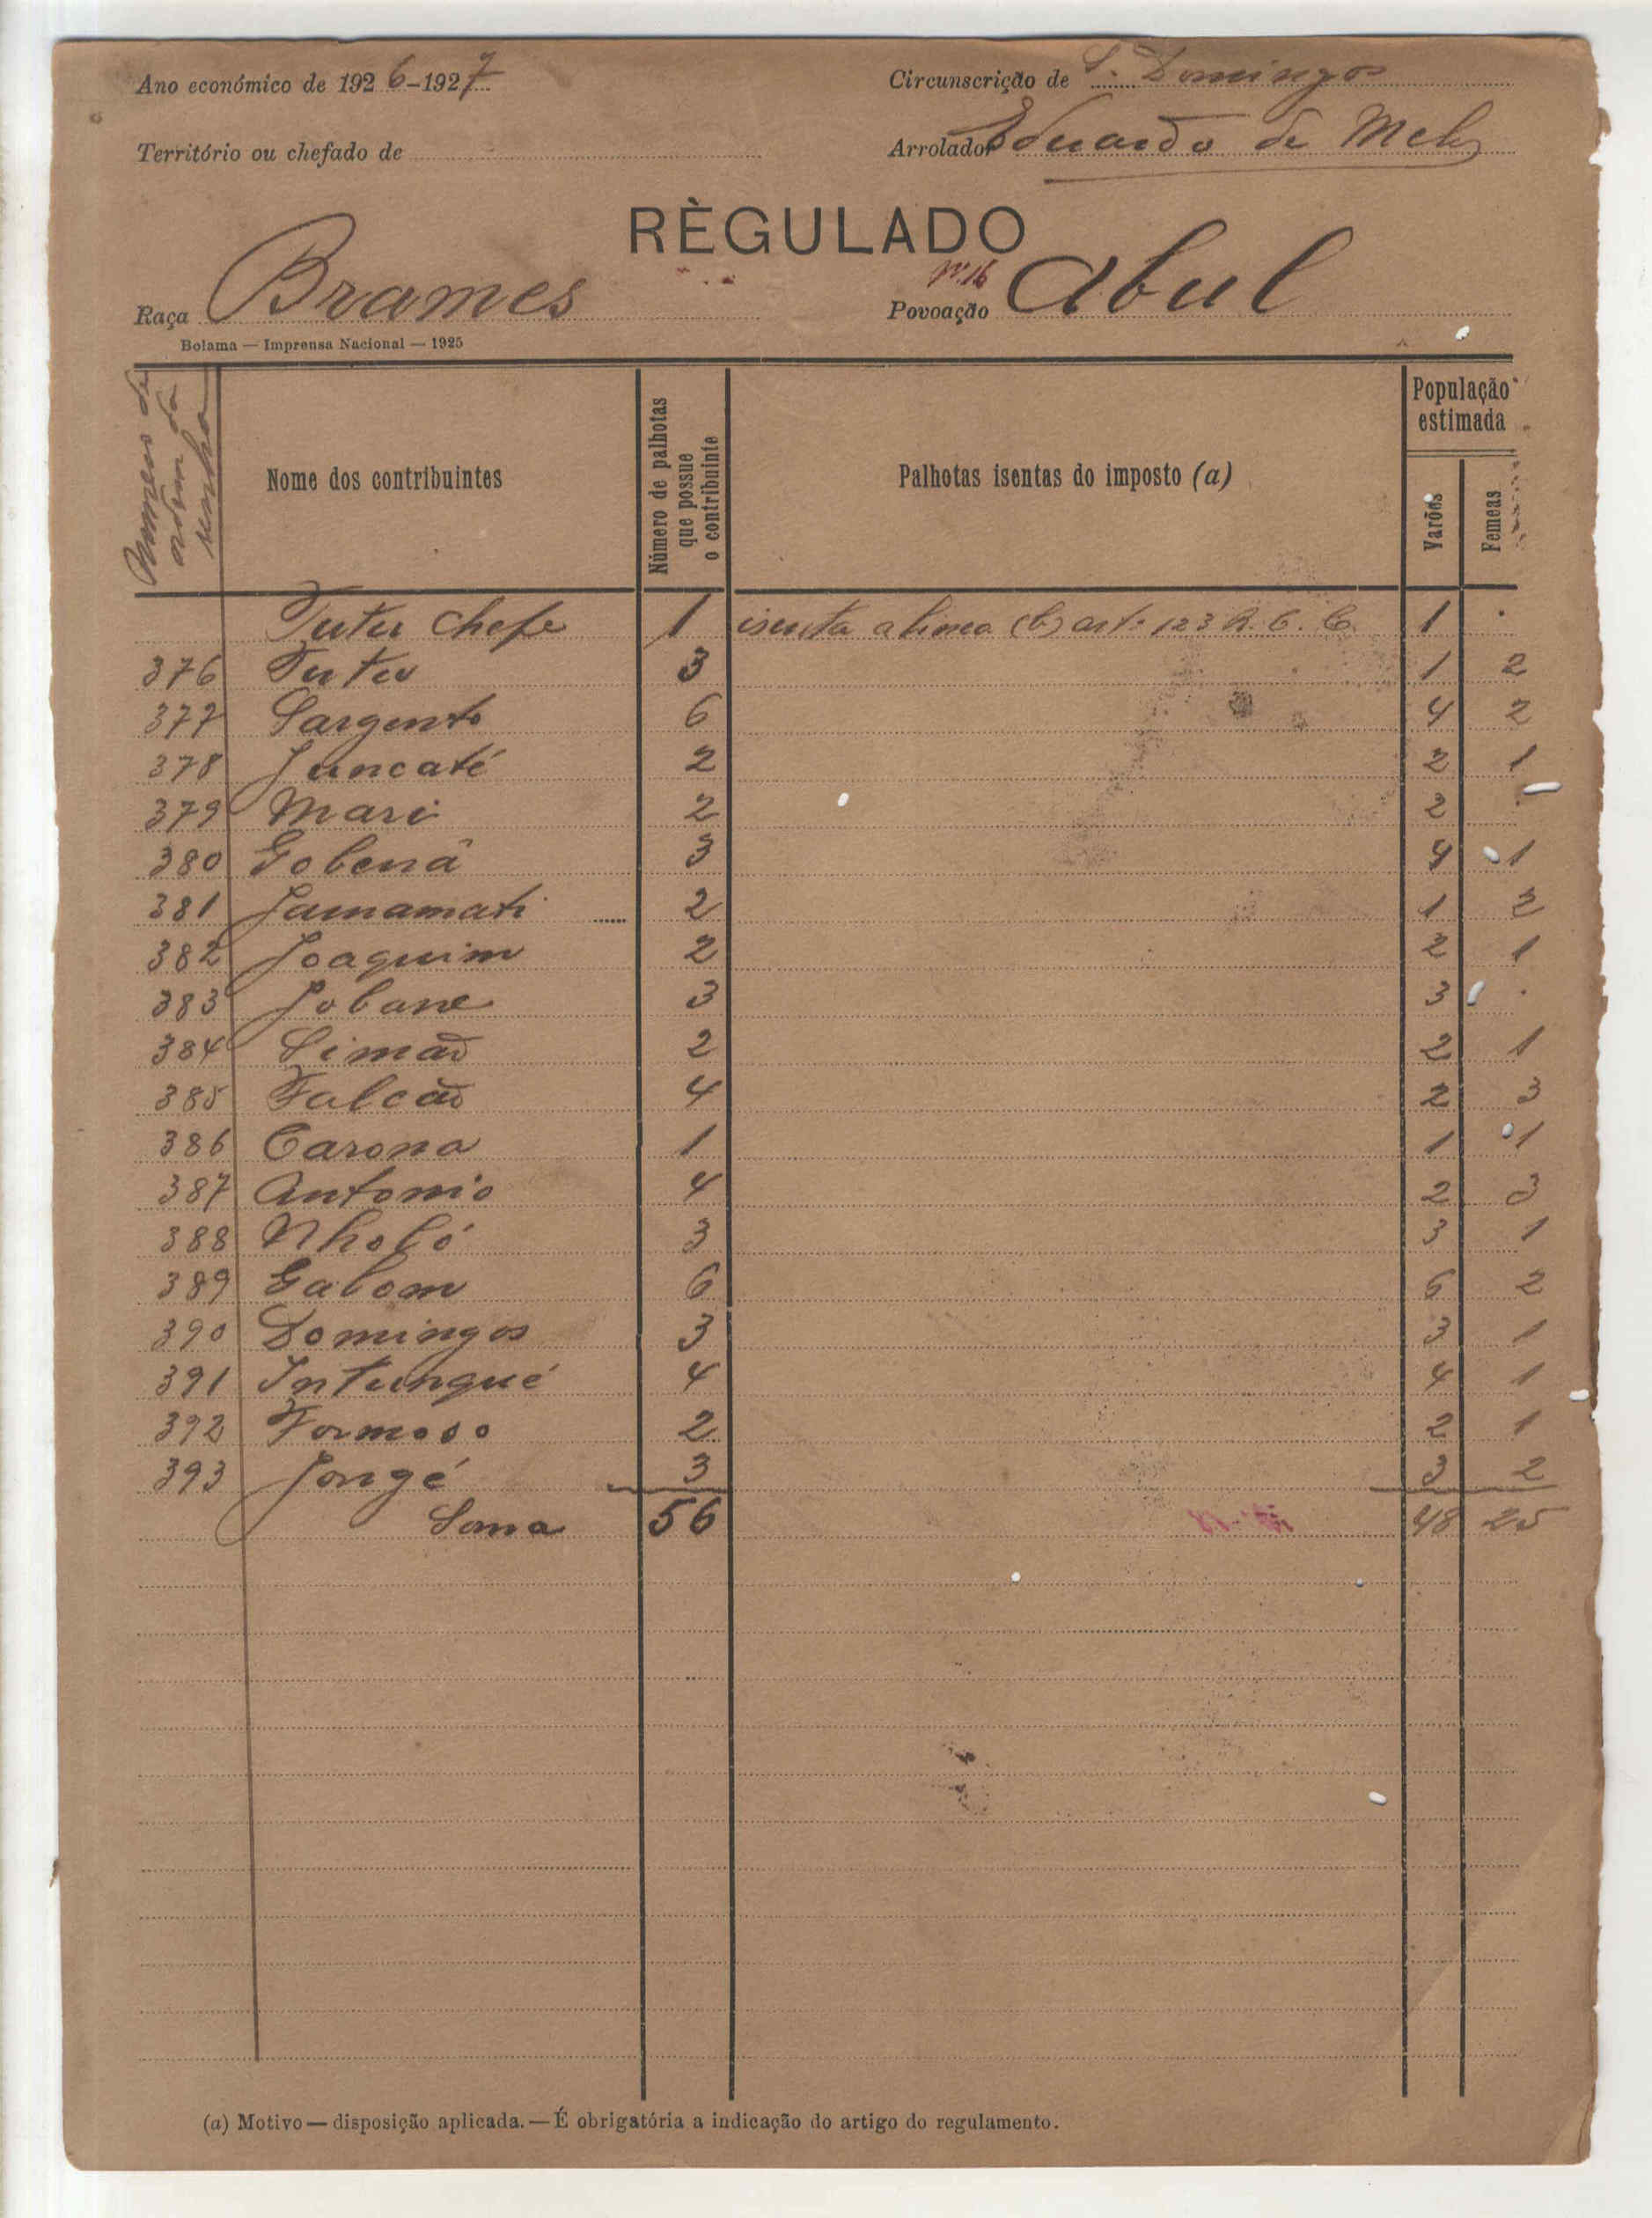 Ano económico de 1926-1927 Circunscrição de S. Domingos
Território ou chefado de Arrolador Eduardo de Melo
RÈGULADO
Nº 16
Raça Brames Povoação Abul
Bolama — Imprensa Nacional — 1925
Nome dos contribuintes
Número de palhotas que possue o contribuinte
Palhotas isentas do imposto (a)
População estimada
Varões
Femeas
Tutu chefe 1 isenta alinea (b) art.º 123 R. C. C. 1 .
376 Tutu 3 1 2
377 Sargento 6 4 2
378 Juncaté 2 2 1
379 Mari 2 2 .
380 Gobenã 3 4 1
381 Jamamati 2 1 2
382 Joaquim 2 2 1
383 Jobane 3 3 .
384 Simão 2 2 1
385 Falcão 4 2 3
386 Carona 1 1 1
387 Antonio 4 2 3
388 Nholó 3 3 1
389 Gabom 6 6 2
390 Domingos 3 3 1
391 Intungué 4 4 1
392 Formoso 2 2 1
393 Jongé 3 3 2
Soma 56 48 25
(a) Motivo — disposição aplicada. — É obrigatória a indicação do artigo do regulamento.